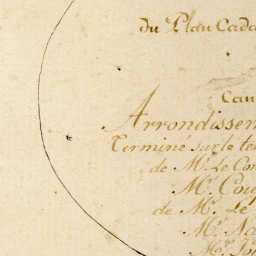 du Plan Cada
Can
Arrondissem
Terminé sur le te
de Mr. Le Com
Mr. Cou
de Mr. Le
Mr. Na
Mr.